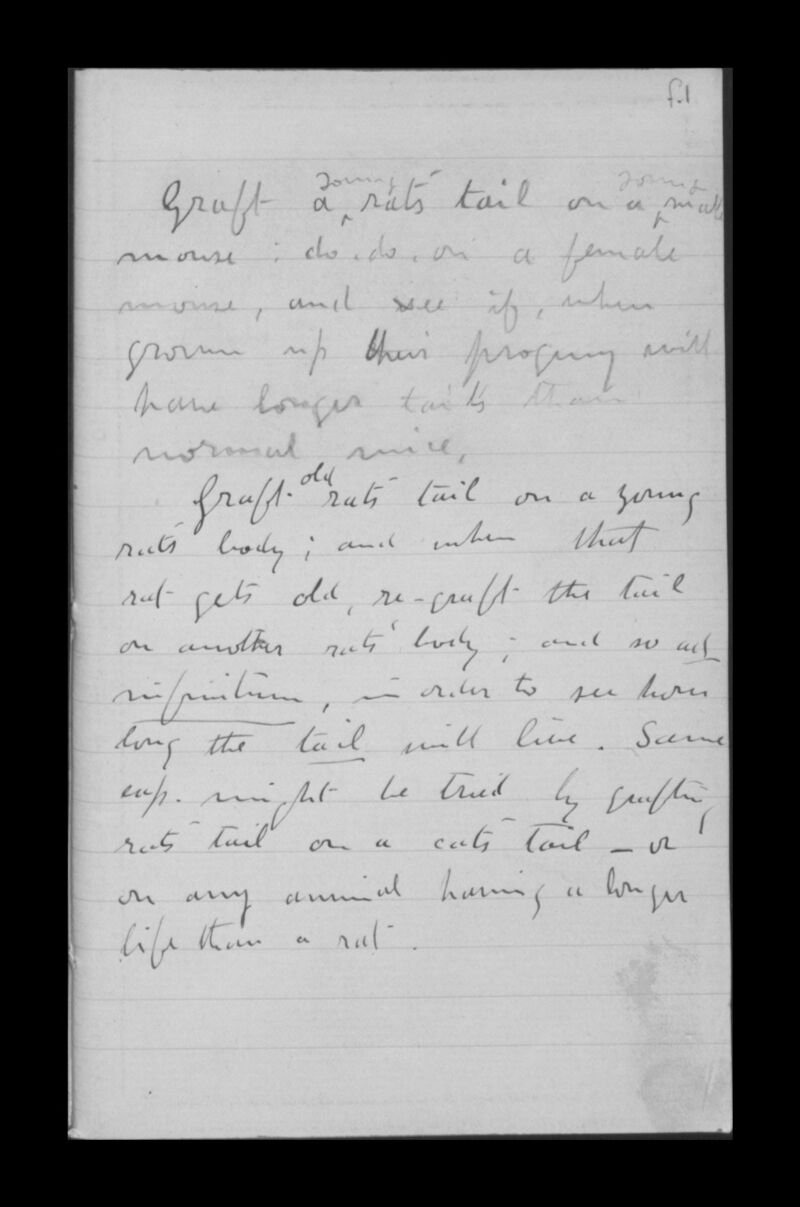 f.1
Graft a young rats' tail on a young male
mouse ; do. do. on a female
mouse, and see if, when
grown up their progeny will
have longer tails than
normal mice.
Graft old rats' tail on a young
rats' body ; and when that
rat gets old, re-graft the tail
on another rats' body ; and so ad
infinitum, in order to see how
long the tail will live. Same
exp. might be tried by grafting
rats' tail on a cats' tail – or
on any animal having a longer
life than a rat.